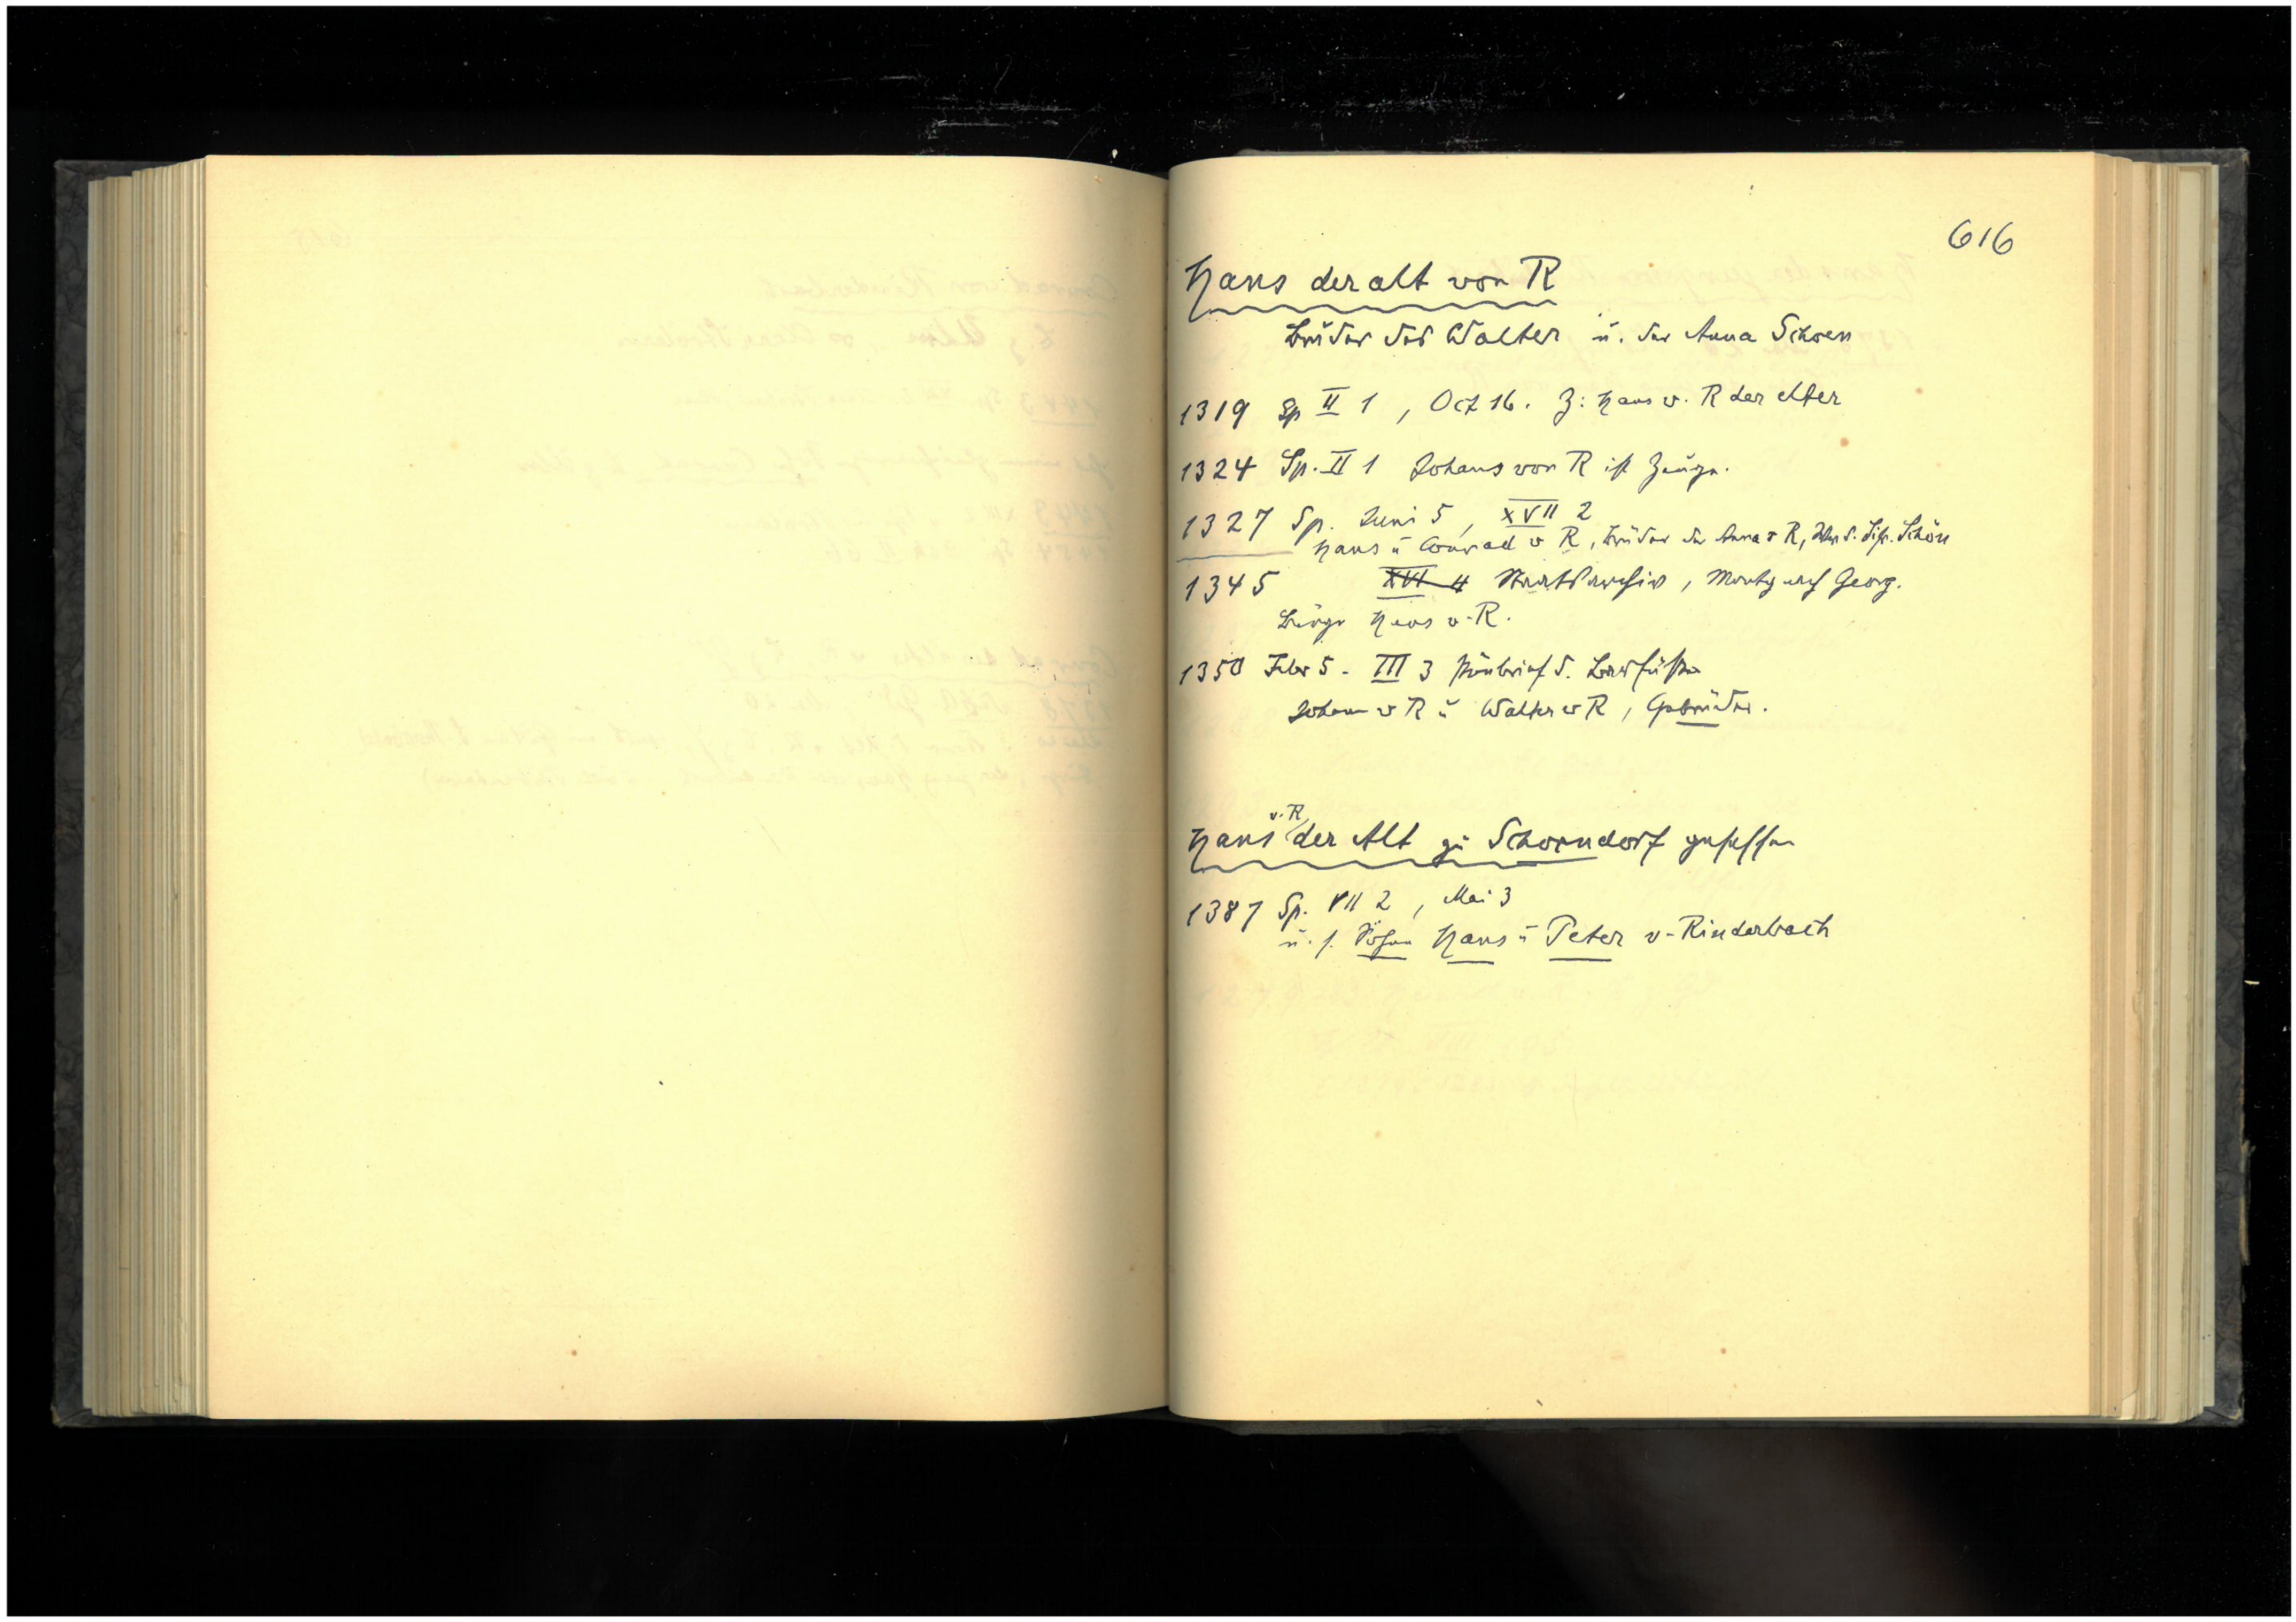 616
Hans der alt von R
Bruder des Walter u. der Anna Schoen
1319 Sp II 1, Oct 16. Z: Hans v. R der elter
1324 Sp. II 1 Johans von R ist Zeuge.
1327 Sp. Juni 5, XVII 2
Hans u Conrad v R, Brüder der Anna v R, Schön
1345 XVI 4 Staatsarchiv, Georg.
Bürge Hans v. R.
1350 Febr 5. III 3 d. Barfüßer
Johann v R u Walter v R, Gebrüder.
Hans v. R der Alt zu Schorndorf gesessen
1387 Sp. VII 2, Mai 3
u. s. Söhne Hans u Peter v. Rinderbach